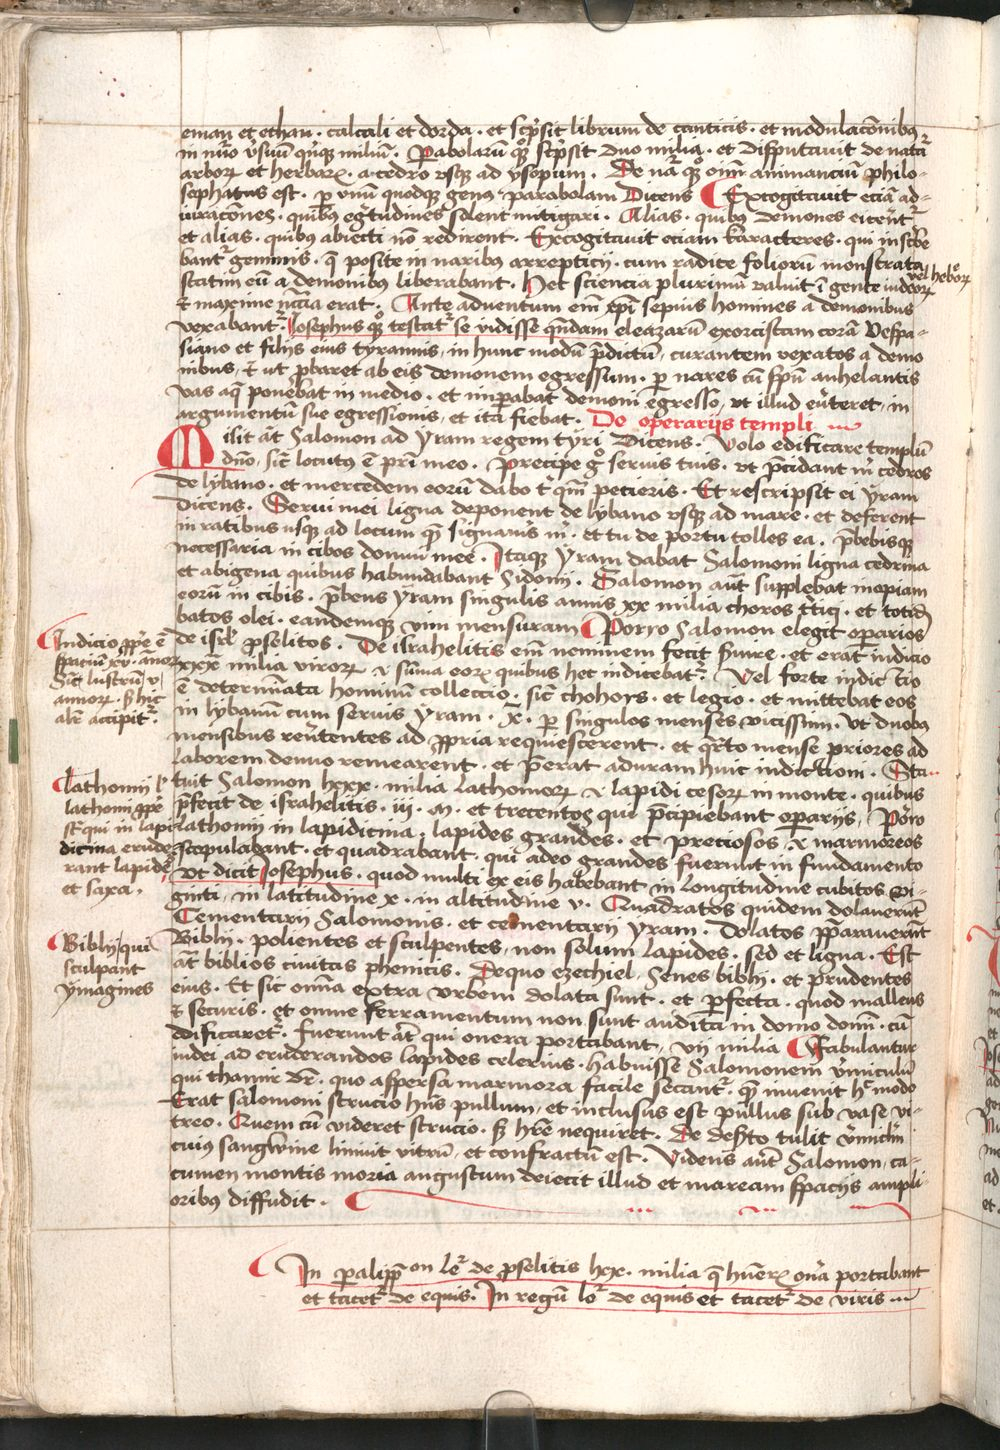 eman et ethan · calcali et dorda · et scpsit librum de canticis · et modulacōnibꝰ
in nūo vsuum qnqꝫ miliū · Pabolarū qꝫ scpsit duo milia · et disputauit de natr̄
arborꝝ et herbarꝝ · a cedro vsqꝫ ad ysopum · De nar̄ qꝫ oīm animanciū philo-
sophatus est · p vnūm quodqꝫ genus parabolam Dicens Excogitauit eciā ad-
iuracōnes · quibꝰ egr̄tudines solent mitigari · Alias · quibꝰ demones eicerēt̄
et alias · quibꝰ abiecti nō redirent · Excogitauit eciam karacteres · qui inscbe
bant̄ gemmis · q̄ posite in naribus arrepticij · cum radice foliorū monstrata
statim eū a demonibus liberabant · Hec sciencia plurimū valuit ī gente iudeorꝝ
vel heborꝝ
⁊ maxime nccīa erat · Ante aduentum em̄ xp̄i sepius homines a demonibus
vexabant̄ · Iosephus qꝫ testat̄ se vidisse qndam eleazarū exorcistam corā Vespa-
siano et filijs eius tyrannis, in hunc modū p̄dictū, curantem vexatos a demo
nibus, ⁊ ut pbaret ab eis demonem egressum · p nares cū spū anhelantis
vas aq̄ ponebat in medio · et impabat demoni egresso, vt illud eūteret, in
argumentū sue egressionis, et ita fiebat · De operarijs templi
Misit āt Salomon ad Yram regem tyri Dicens · Volo edificare templū
dn̄o, sic̄ locutꝰ ē pr̄i meo · Precipe gͦ seruis tuis · vt p̄cidant m̄ cedros
de lybano · et mercedem eorū dabo t̄ qm̄ pecieris · Et rescripsit ei yram
Dicens · Serui mei ligna deponent de lybano vsqꝫ ad mare · et deferent
in ratibus usqꝫ ad locum quē signauīs m̄ · et tu de portu tolles ea · p̄bebisqꝫ
necessaria in cibos domui mee · Itaqꝫ Yram dabat Salomoni ligna cedrina
et abigena quibus habundabant Sidonij · Salomon aut̄ supplebat inopiam
eorū in cibis · p̄bens yram singulis annis xx milia choros tritici · et totid
batos olei · eandemqꝫ vini mensuram Porro Salomon elegit opārios
de isrl̄ pselitos · De israhelitis em̄ neminem fecit suire · et erat indicio
xxx milia virorꝝ ⁊ sūma eorꝝ quibus hec indicebat̄ · Vel forte indic tio
ē determinata hominum colleccio · sic̄ chohors · et legio · et mittebat eos
in lybanū cum seruis Yram · x̄ · p singulos menses vicissim · Vt duobꝰ
mensibus reūtentes ad ppria requiescerent · et qrto mense priores ad
laborem denuo remearent · et p̄erat aduram huic indictioni · Sta-
tuit Salomon lxxx · milia lathomorꝝ ⁊ lapidi cesorꝝ in monte · quibus
p̄fecit de israhelitis · iij · m · et trecentos qui p̄cipiebant opārijs, Porro
lathomij in lapidicina · lapides grandes · et preciosos ⁊ marmoreos
scapulabant · et quadrabant · qui adeo grandes fuerunt in fundamento
vt dicit Iosephus · quod multi ex eis habebant in longitudine cubitos vi-
ginti, in latitudine x · in altitudine v · Quadratos quidem dolauerūt
Cementarij Salomonis · et cementarij yram · Dolatos pparauerūt
Biblij · polientes et sculpentes, non solum lapides, sed et ligna · Est
āt biblios ciuitas phenicis · De quo ezechiel, Senes biblij · et prudentes
eius · Et sic omnīa extra vrbem dolata sunt · et pfecta · quod malleus
⁊ securis · et omne ferramentum non sunt audita in domo domī · cū
edificaret̄ · fuerunt āt qui onera portabant, vij milia Fabulantur
iudei ad erūderandos lapides celerius · habuisse Salomonem vmiculū
qui thamir dr̄ · quo aspersa marmora facile secant̄ · quē inuenit hͦ modo
Erat salomoni strucio hn̄s pullum, et inclusus est pullus sub vase vi-
treo · Quem cū videret strucio · sꝫ hr̄e nequiret · De deserto tulit vmicl̄m
cuius sangwine liniuit vitrū, et confractū est · Videns aut̄ Salomon, ca-
cumen montis moria angustum deiecit illud et in aream spacijs ampli-
oribus diffudit ·
Indicio ppe ē
spaciū xv · anorꝝ
sic̄ lustrū v
annorꝝ · sꝫ hic
alr̄ accipit̄ ·
lathomij l
lathomi ppe
st̄ qui in lapi
dicina erude
rant lapides
et saxa ·
Biblij qui
sculpant
ymagines
In palipp̄on lr̄ de pselitis lxx · milia q̄ hūerꝝ on̄a portabant
et tacet̄ de equis · In regū lr̄ de equis et tacet̄ de viris